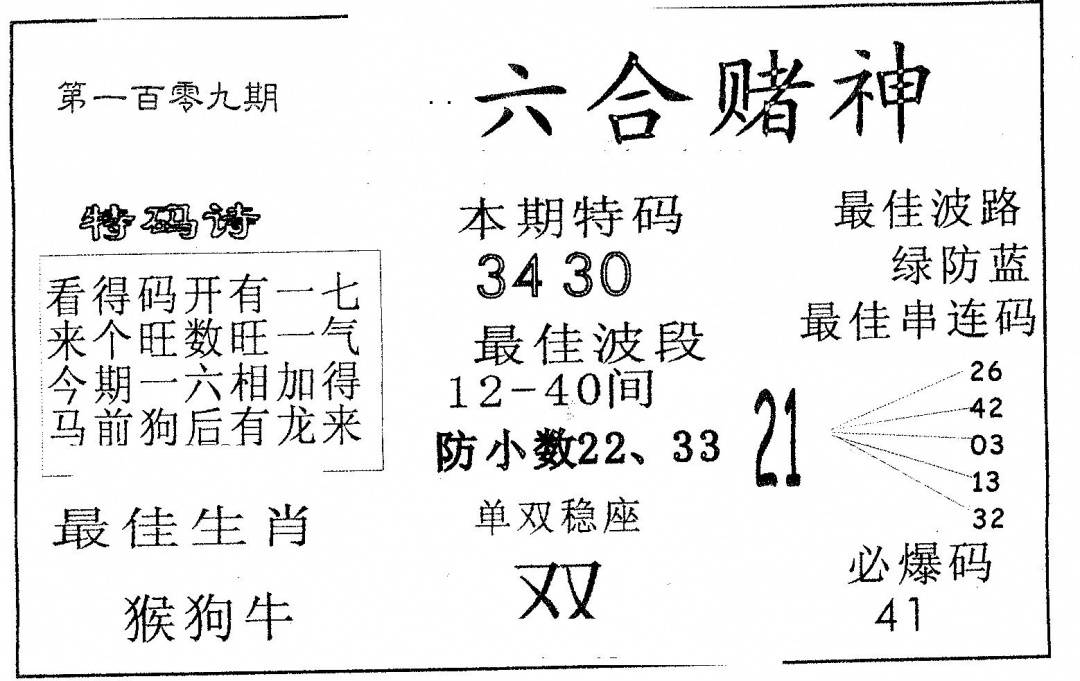 第一百零九期
六合赌神
特码诗
看得码开有一七
来个旺数旺一气
今期一六相加得
马前狗后有龙来
最佳生肖
猴狗牛
本期特码
34 30
最佳波段
12-40间
防小数22、33
单双稳座
双
最佳波路
绿防蓝
最佳串连码
21
26
42
03
13
32
必爆码
41